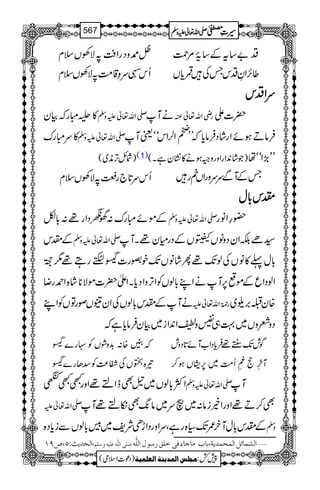 سیرتِ مصطفیٰ صلی اللہ تعالیٰ علیہ وسلم 567
قدِ بے سایہ کے سایۂ مرحمت ظلِ ممدودِ رافت پہ لاکھوں سلام
طائرانِ قدس جس کی ہیں قمریاں اُس سہی سرو قامت پہ لاکھوں سلام
سرِ اقدس
حضرت علی رضی اللہ تعالیٰ عنہ نے آپ صلی اللہ تعالیٰ علیہ وسلم کا حلیہ مبارکہ بیان
فرماتے ہوئے ارشاد فرمایا کہ ’’ضخم الراس‘‘ یعنی آپ صلی اللہ تعالیٰ علیہ وسلم کا سر مبارک
’’بڑا‘‘ تھا (جو شاندار اور وجیہ ہونے کا نشان ہے۔) (1) (شمائل ترمذی)
جس کے آگے سرِ سروراں خم رہیں اُس سرِ تاجِ رفعت پہ لاکھوں سلام
مقدس بال
حضورِ انور صلی اللہ تعالیٰ علیہ وسلم کے موئے مبارک نہ گھونگھردار تھے نہ بالکل
سیدھے بلکہ ان دونوں کیفیتوں کے درمیان تھے۔ آپ صلی اللہ تعالیٰ علیہ وسلم کے مقدس
بال پہلے کانوں کی لو تک تھے پھر شانوں تک خوبصورت گیسو لٹکتے رہتے تھے مگر حجۃ
الوداع کے موقع پر آپ نے اپنے بالوں کو اتروا دیا۔ اعلیٰ حضرت مولانا شاہ احمد رضا
خاں قبلہ بریلوی رحمۃ اللہ تعالیٰ علیہ نے آپ کے مقدس بالوں کی ان تینوں صورتوں کو اپنے
دو شعروں میں بہت ہی نفیس و لطیف انداز میں بیان فرمایا ہے کہ
گوش تک سنتے تھے فریاد اب آئے تا دوش کہ بنیں خانہ بدوشوں کو سہارے گیسو
آخرِ حج غمِ اُمت میں پریشاں ہو کر تیرہ بختوں کی شفاعت کو سدھارے گیسو
آپ صلی اللہ تعالیٰ علیہ وسلم اکثر بالوں میں تیل بھی ڈالتے تھے اور کبھی کبھی کنگھی
بھی کرتے تھے اور اخیر زمانہ میں بیچ سر میں مانگ بھی نکالتے تھے آپ صلی اللہ تعالیٰ علیہ
وسلم کے مقدس بال آخر عمر تک سیاہ رہے، سر اور داڑھی شریف میں بیس بالوں سے زیادہ
......الشمائل المحمدیۃ، باب ماجاء فی خلق رسول اللہ صلی اللہ علیہ وسلم، الحدیث:۵، ص۱۹
پیش کش: مجلس المدینة العلمیة (دعوتِ اسلامی)